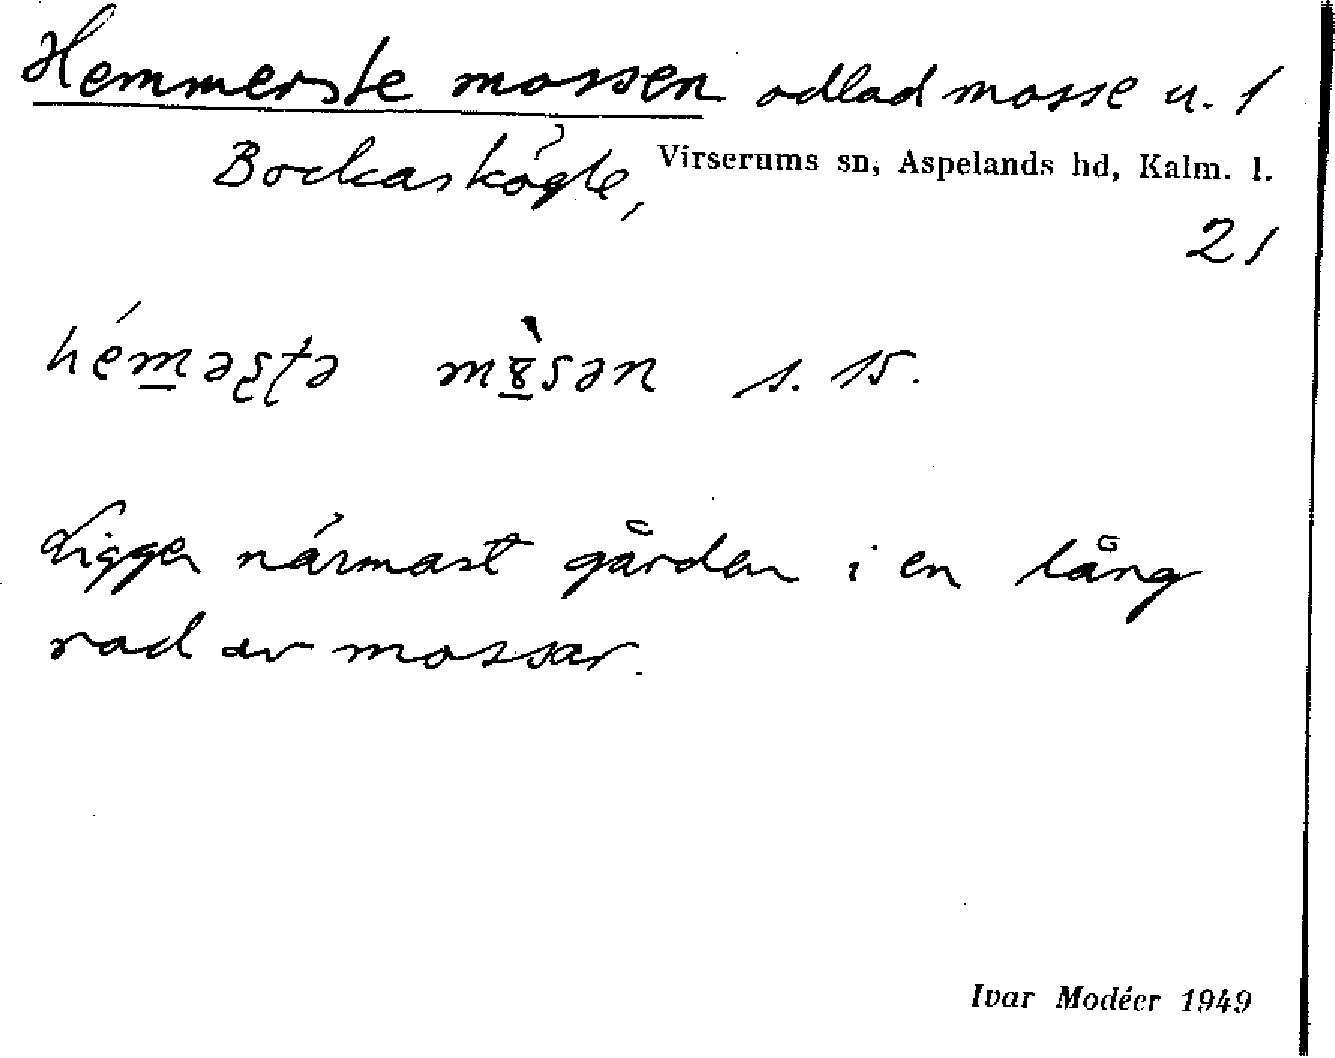 Hemmerste mossen odlad mosse u. 1
Bockaskögle, Virserums sn, Aspelands hd, Kalm. l.
21
héməʂʈə mɤ̀sən s. 15.
Ligger närmast gården i en lång
rad av mossar.
Ivar Modéer 1949